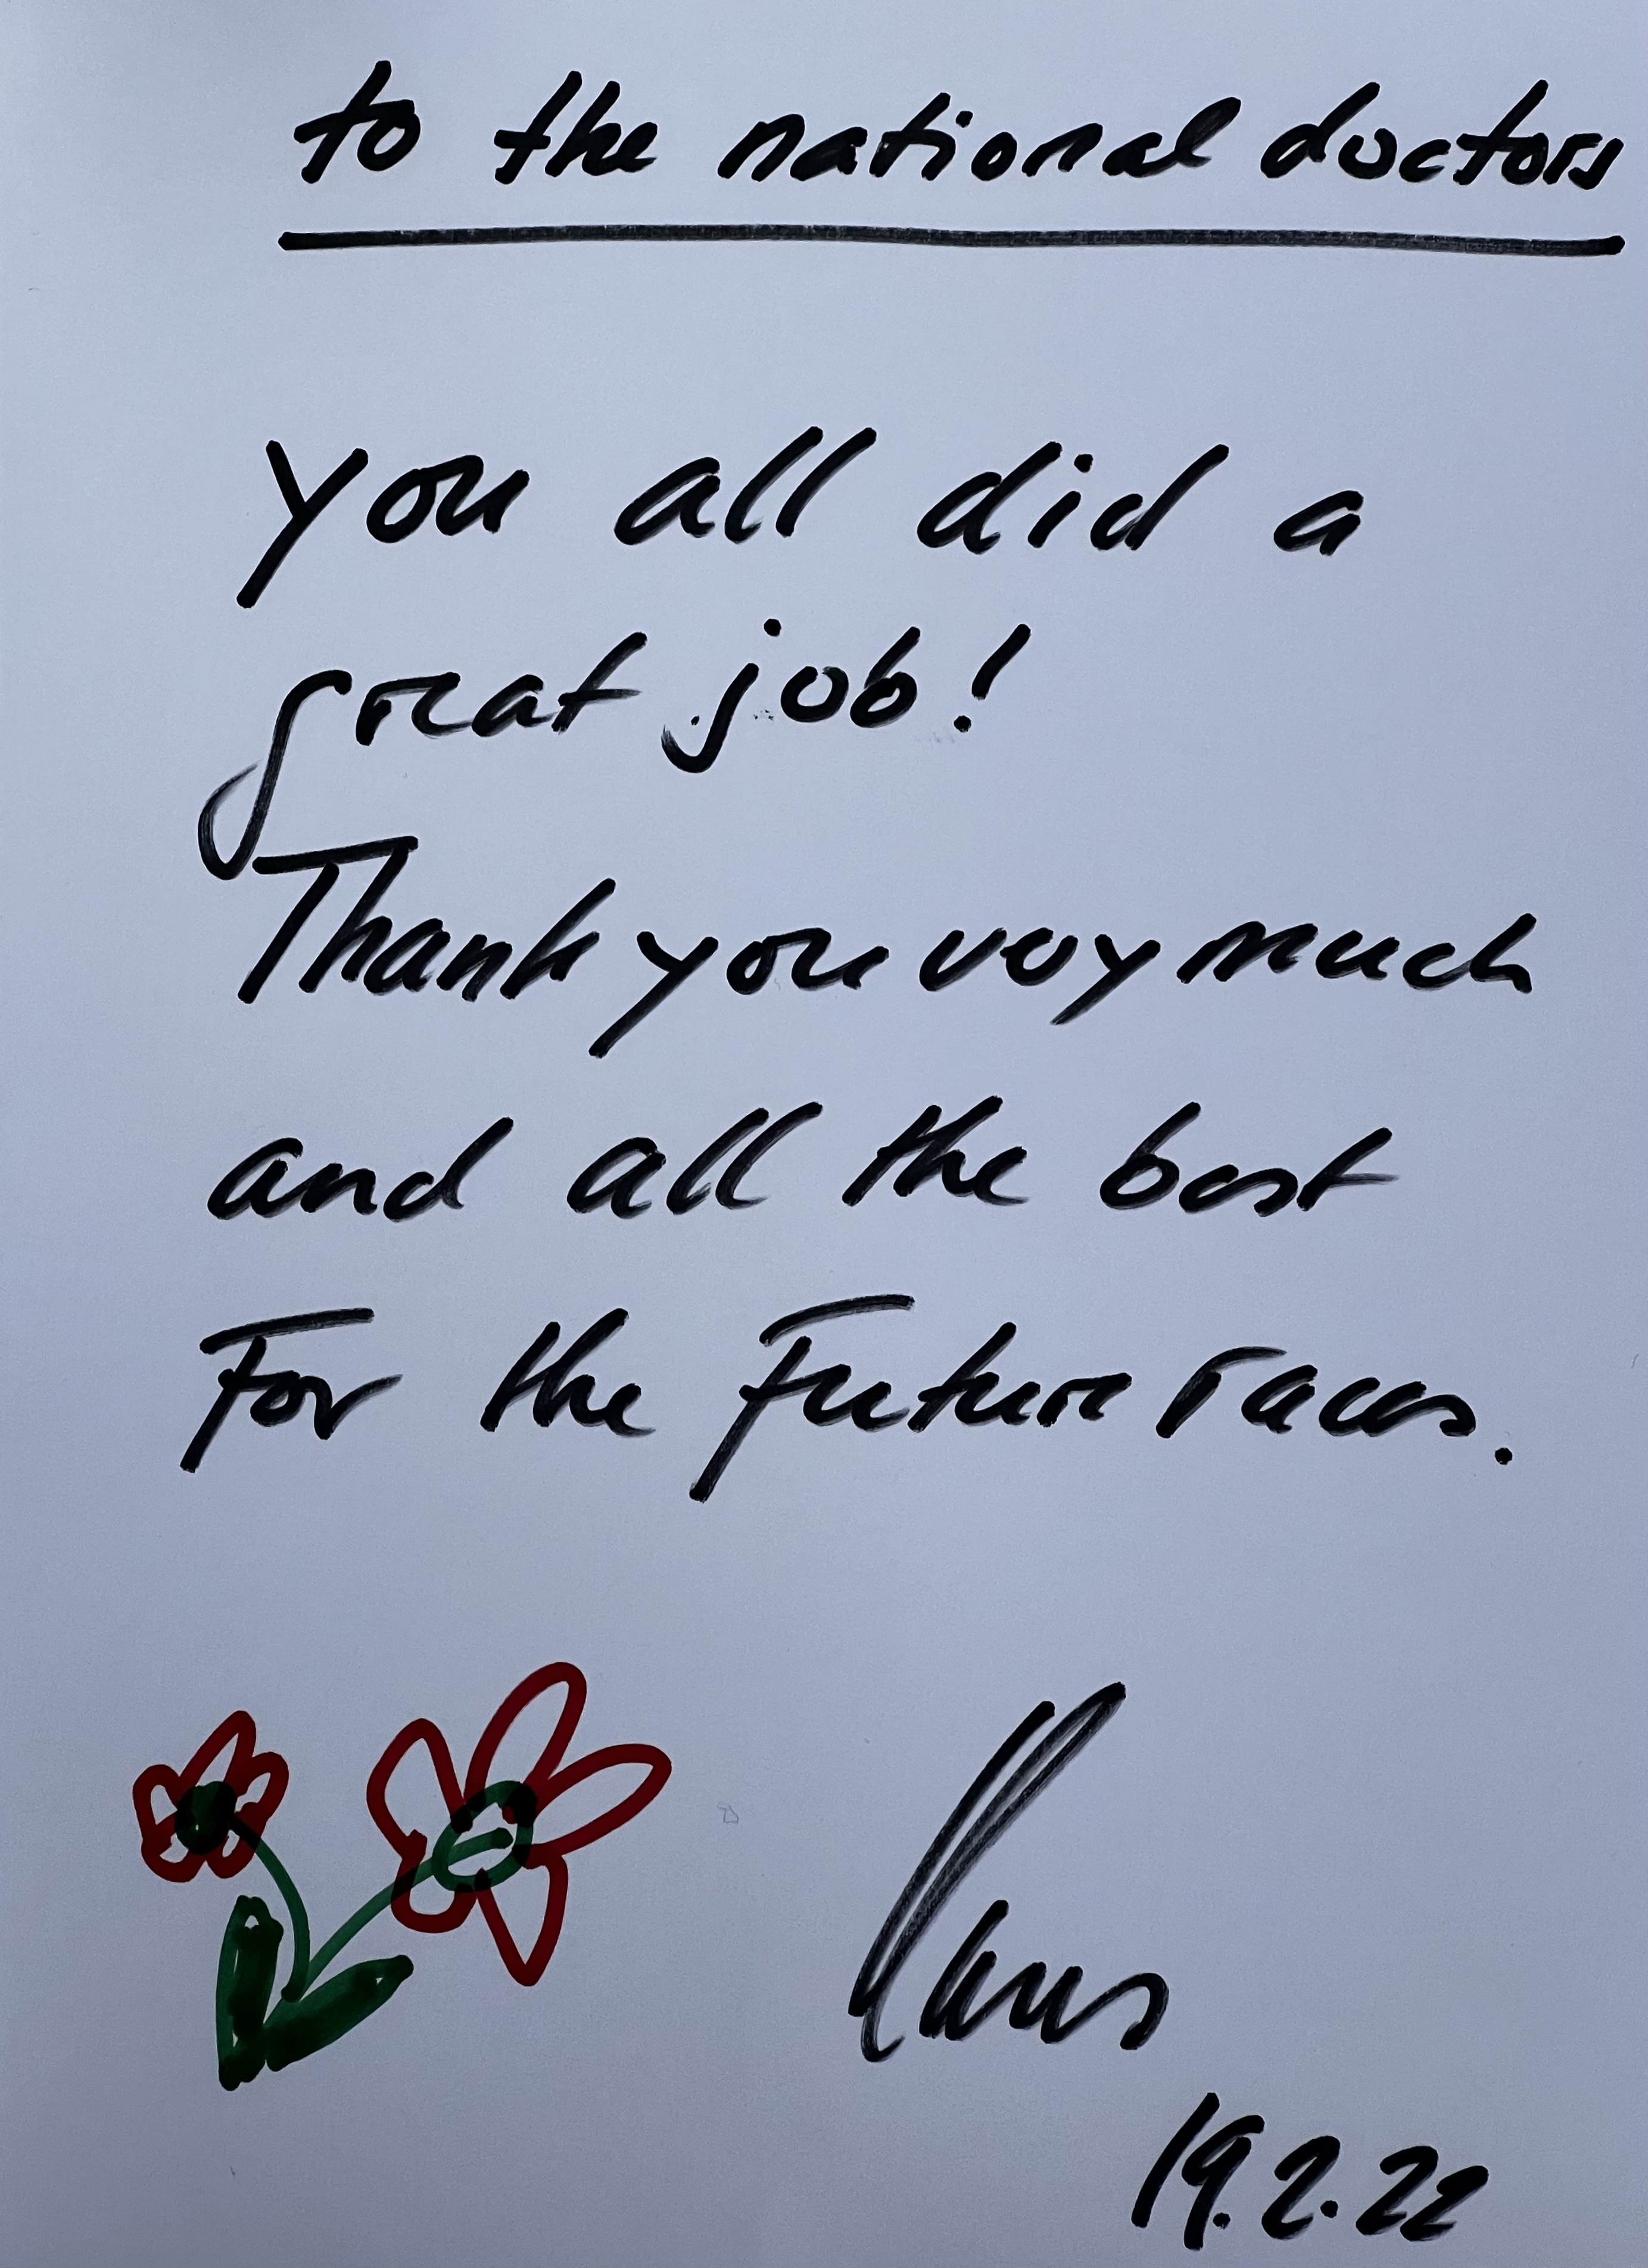 to the national doctors
you all did a
great job!
Thank you very much
and all the best
For the Future races.
19.2.22